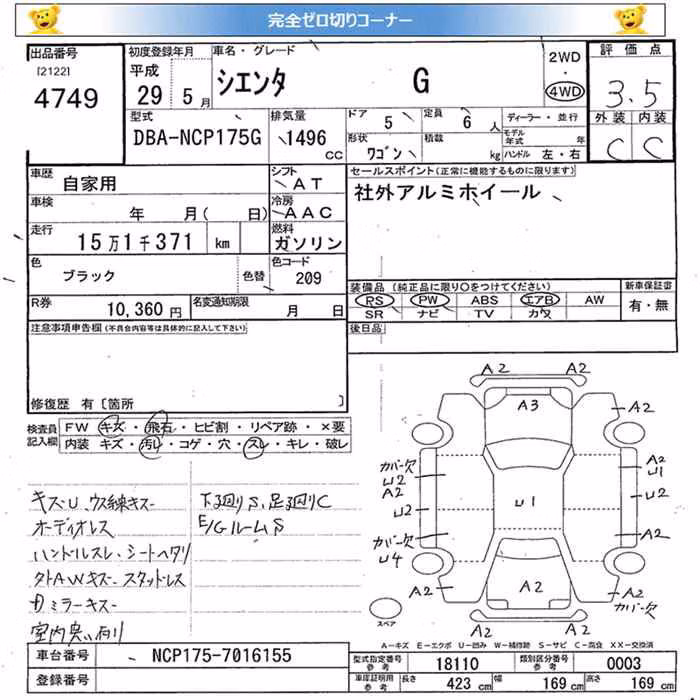 完全ゼロ切りコーナー
出品番号 初度登録年月 車名・グレード 2WD・4WD 評価点
[2122] 平成
4749 29 5月 シエンタ G 3.5
型式 排気量 ドア 5 定員 6人 ディーラー・並行 外装 内装
DBA-NCP175G 1496 CC 形状 ワゴン 積載 kg モデル年式 年 C C
ハンドル 左・右
車歴 自家用 シフト AT セールスポイント(正常に機能するものに限ります)
車検 年 月( 日) 冷房 AAC 社外アルミホイール
走行 15万1千371 km 燃料 ガソリン
色 ブラック 色替 色コード 209
装備品(純正品に限り○をつけてください) 新車保証書
R券 10,360円 名変通知期限 月 日 PS PW ABS エアB AW 有・無
SR ナビ TV カワ
注意事項申告欄(不具合内容等は具体的に記入して下さい) 後日品
修復歴 有〔箇所 〕
検査員記入欄 FW キズ・飛石・ヒビ割・リペア跡・×要
内装 キズ・汚レ・コゲ・穴・スレ・キレ・破レ
キズU、ウス線キズー 下廻りS、足廻りC
オーディオレス E/GルームS
ハンドルスレ、シートヘタリ
タトAWキズー スタッドレス
ミラーキズー
室内臭い有り
A2 A2
A3 A2
カバー欠 A2
U2 U1
A2 U1 U2
U2
カバー欠 A2
U4
A2 A2 A2
カバー欠
スペア A2 A2
A-キズ E-エクボ U-凹み W-補修跡 S-サビ C-腐食 XX-交換済
車台番号 NCP175-7016155 型式指定番号 参考 18110 類別区分番号 参考 0003
登録番号 車庫証明用 参考 長さ 423 cm 幅 169 cm 高さ 169 cm